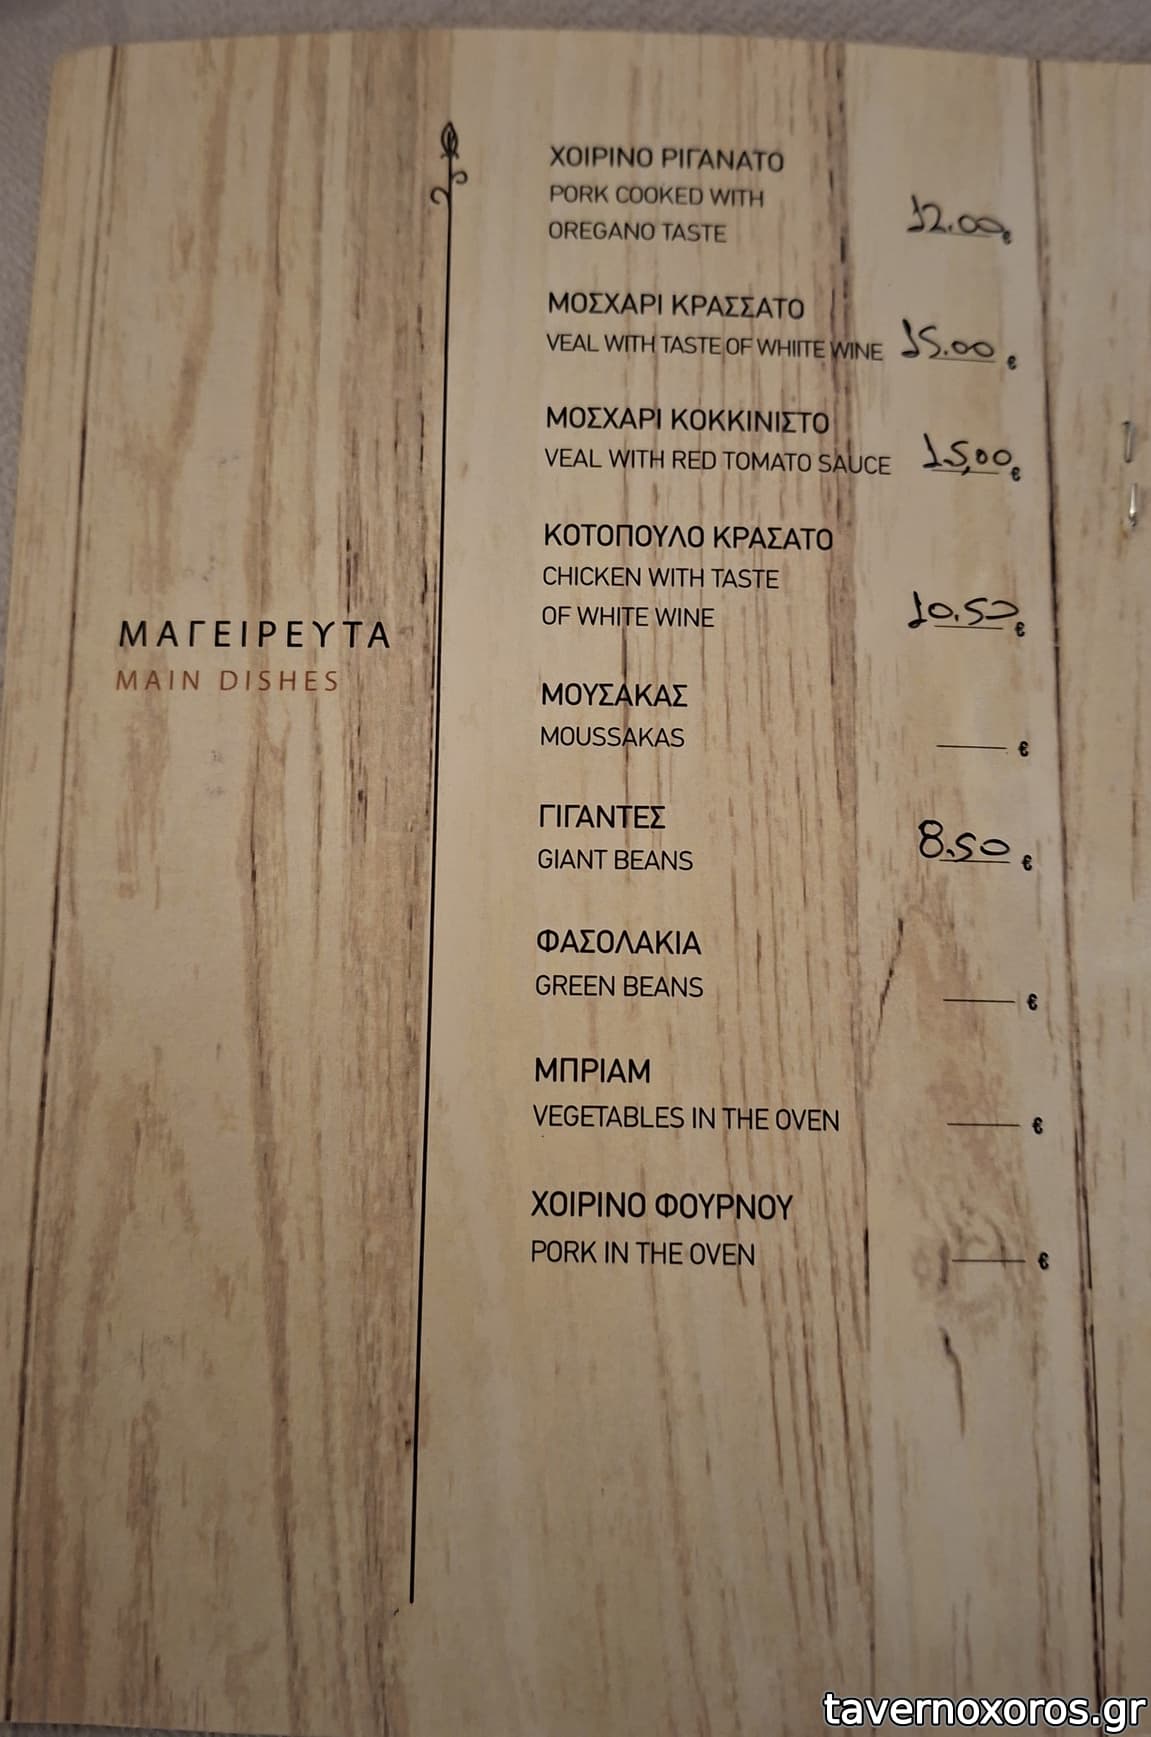 ΜΑΓΕΙΡΕΥΤΑ
MAIN DISHES
ΧΟΙΡΙΝΟ ΡΙΓΑΝΑΤΟ
PORK COOKED WITH
OREGANO TASTE 12.00 €
ΜΟΣΧΑΡΙ ΚΡΑΣΣΑΤΟ
VEAL WITH TASTE OF WHIITE WINE 15.00 €
ΜΟΣΧΑΡΙ ΚΟΚΚΙΝΙΣΤΟ
VEAL WITH RED TOMATO SAUCE 15,00 €
ΚΟΤΟΠΟΥΛΟ ΚΡΑΣΑΤΟ
CHICKEN WITH TASTE
OF WHITE WINE 10.50 €
ΜΟΥΣΑΚΑΣ
MOUSSAKAS €
ΓΙΓΑΝΤΕΣ
GIANT BEANS 8.50 €
ΦΑΣΟΛΑΚΙΑ
GREEN BEANS €
ΜΠΡΙΑΜ
VEGETABLES IN THE OVEN €
ΧΟΙΡΙΝΟ ΦΟΥΡΝΟΥ
PORK IN THE OVEN €
tavernoxoros.gr